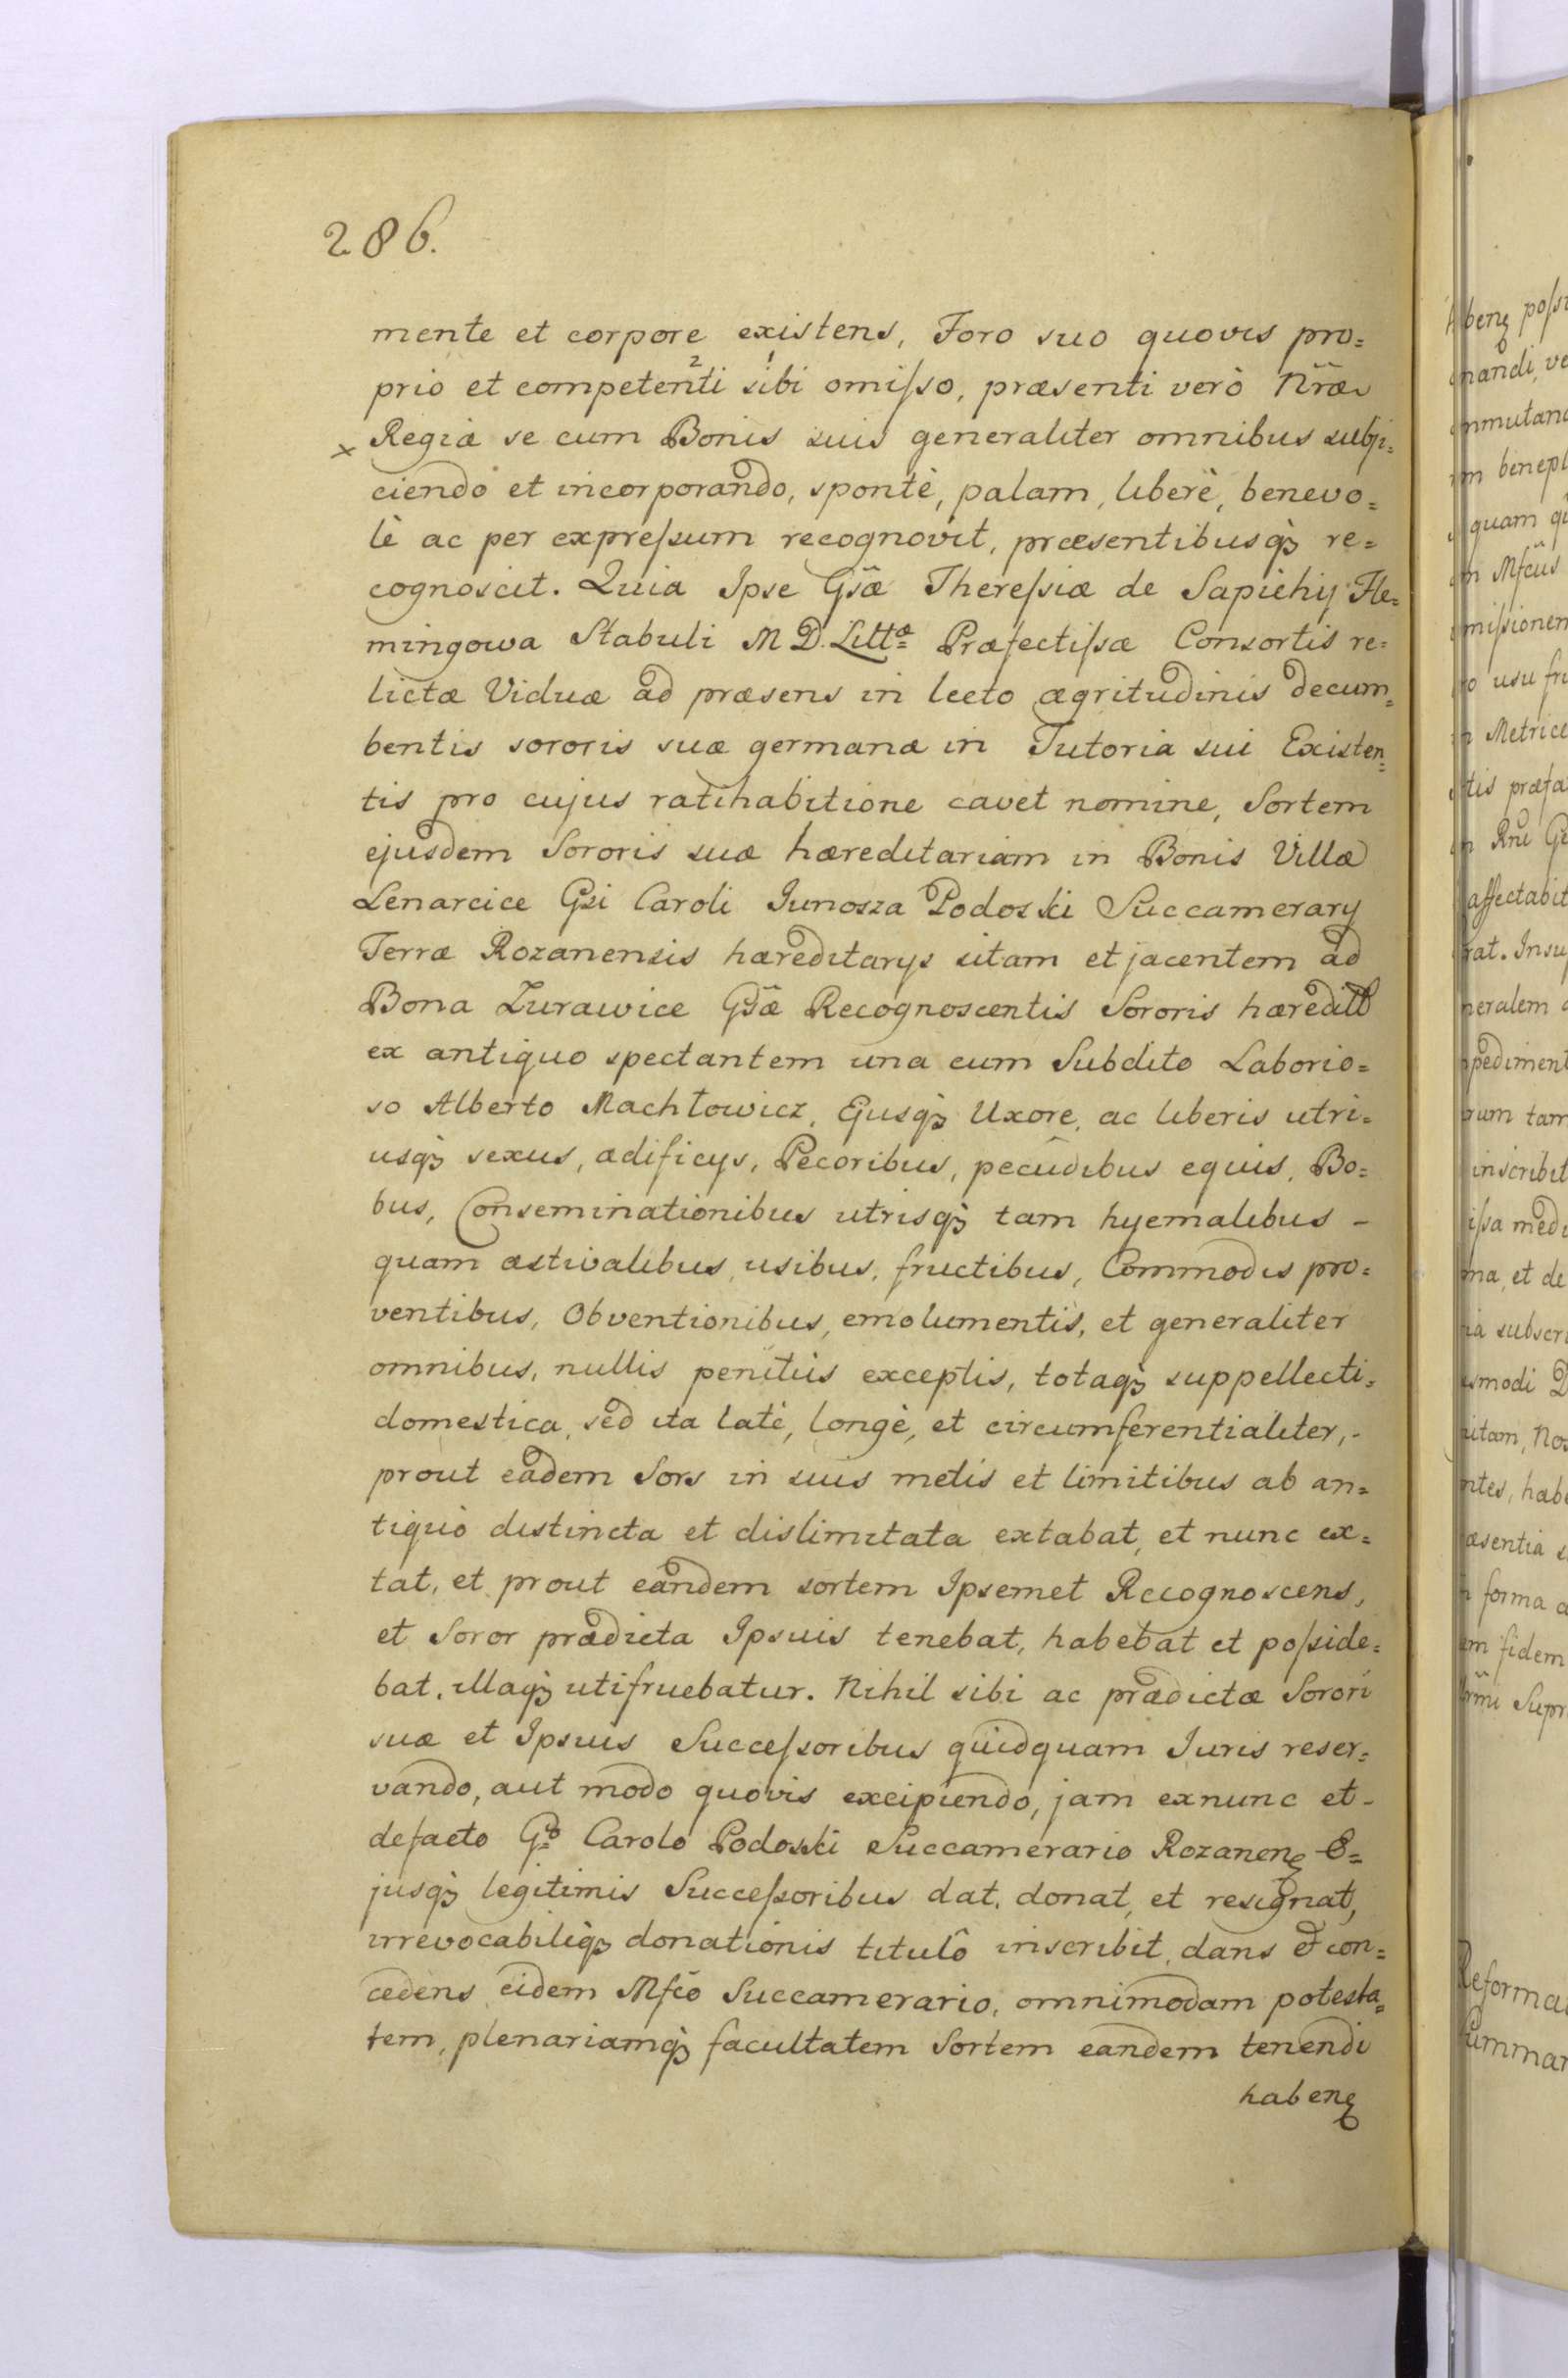 286.
mente et corpore existens, Foro suo quovis pro=
prio et competenti² sibi¹ omisso, præsenti verò Nr̃æ
× Regiæ se cum Bonis suis generaliter omnibus subji=
ciendo et incorporando, spontè, palam, liberè, benevo=
lè ac per expressum recognovit, præsentibusq̃ re=
cognoscit. Quia Ipse Gsæ̃ Theressiæ de Sapiehij Fle=
mingowa Stabuli M D. Littæ Præfectissæ Consortis re=
lictæ Viduæ ad præsens in lecto ægritudinis decum=
bentis sororis suæ germanæ in Tutoria sui Existen=
tis pro cujus ratihabitione cavet nomine, Sortem
ejusdem Sororis suæ hæreditariam in Bonis Villæ
Lenarcice Gsi Caroli Junosza Podoski Succamerary
Terræ Rozanensis hæreditarys sitam et jacentem ad
Bona Zurawice Gsæ̃ Recognoscentis Sororis hæreditt
ex antiquo spectantem una cum Subdito Laborio=
so Alberto Machłowicz, Ejusq̃ Uxore, ac liberis utri=
usq̃ sexus, ædificys, Pecoribus, pecudibus equis, Bo=
bus, Conseminationibus utrisq̃ tam hyemalibus -
quam æstivalibus, usibus, fructibus, Commodis pro=
ventibus, Obventionibus, emolumentis, et generaliter
omnibus, nullis penitùs exceptis, totaq̃ suppellecti=
domestica, sed ita latè, longè, et circumferentialiter, -
prout eadem Sors in suis metis et limitibus ab an=
tiquò distincta et dislimitata extabat, et nunc ex=
tat, et prout eandem sortem Ipsemet Recognoscens,
et Soror prædicta Ipsuis tenebat, habebat et posside=
bat, illaq̃ utifruebatur. Nihil sibi ac prædictæ Sorori
suæ et Ipsuis Successoribus quidquam Juris reser=
vando, aut modo quovis excipiendo, jam exnunc et -
defacto Gso Carolo Podoski Succamerario Rozanen̨ E=
jusq̃ legitimis Successoribus dat, donat, et resignat,
irrevocabiliq̃ donationis titulô inscribit, dans et con=
cedens eidem Mfc̃o Succamerario, omnimodam potesta=
tem, plenariamq̃ facultatem Sortem eandem tenendi
haben̨